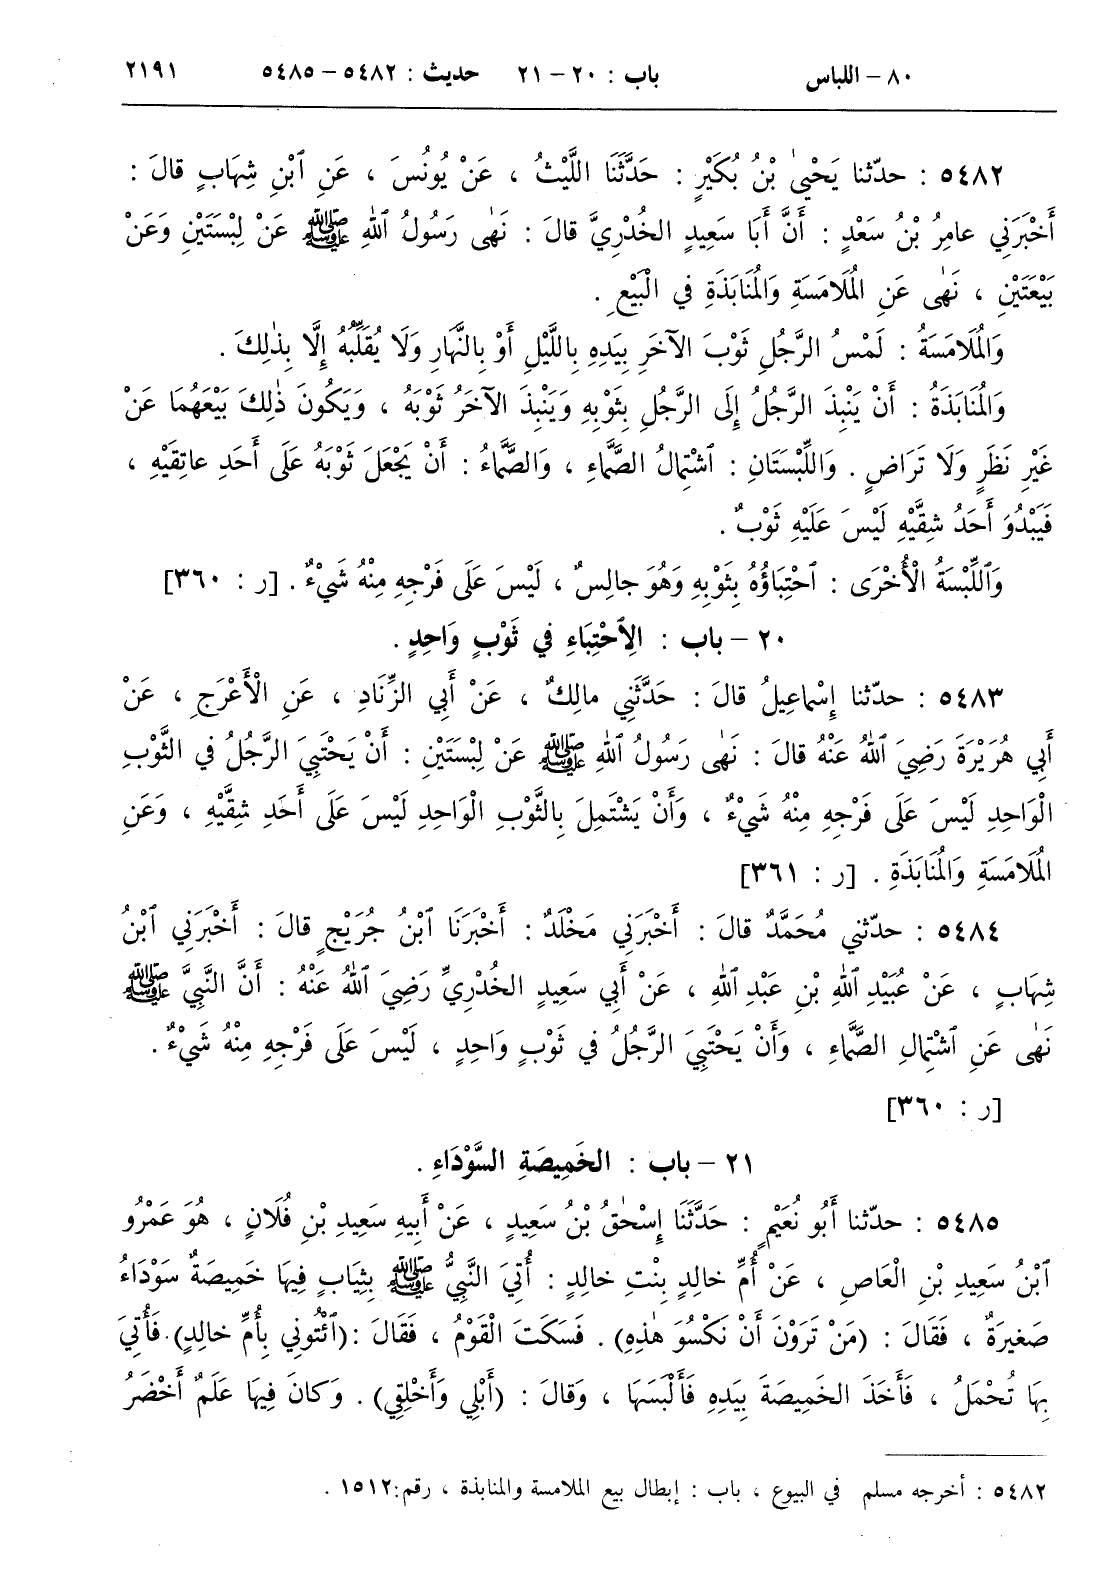 ٨٠ – اللباس باب : ٢٠ – ٢١ حديث : ٥٤٨٢ – ٥٤٨٥ ٢١٩١
٥٤٨٢ : حدّثنا يَحْيىٰ بْنُ بُكَيْرٍ : حَدَّثَنَا اللَّيْثُ ، عَنْ يُونُسَ ، عَنِ ٱبْنِ شِهَابٍ قالَ :
أَخْبَرَنِي عامِرُ بْنُ سَعْدٍ : أَنَّ أَبَا سَعِيدٍ الخُدْرِيَّ قالَ : نَهٰى رَسُولُ ٱللهِ ﷺ عَنْ لِبْسَتَيْنِ وَعَنْ
بَيْعَتَيْنِ ، نَهٰى عَنِ المُلَامَسَةِ وَالمُنَابَذَةِ في الْبَيْعِ .
وَالمُلَامَسَةُ : لَمْسُ الرَّجُلِ ثَوْبَ الآخَرِ بِيَدِهِ بِاللَّيْلِ أَوْ بِالنَّهَارِ وَلَا يُقَلِّبُهُ إِلَّا بِذٰلِكَ .
وَالمُنَابَذَةُ : أَنْ يَنْبِذَ الرَّجُلُ إِلَى الرَّجُلِ بِثَوْبِهِ وَيَنْبِذَ الآخَرُ ثَوْبَهُ ، وَيَكُونَ ذٰلِكَ بَيْعَهُمَا عَنْ
غَيْرِ نَظَرٍ وَلَا تَرَاضٍ . وَاللِّبْسَتَانِ : ٱشْتِمَالُ الصَّمَّاءِ ، وَالصَّمَّاءُ : أَنْ يَجْعَلَ ثَوْبَهُ عَلَى أَحَدِ عاتِقَيْهِ ،
فَيَبْدُوَ أَحَدُ شِقَّيْهِ لَيْسَ عَلَيْهِ ثَوْبٌ .
وَٱللِّبْسَةُ الْأُخْرَى : ٱحْتِبَاؤُهُ بِثَوْبِهِ وَهُوَ جالِسٌ ، لَيْسَ عَلَى فَرْجِهِ مِنْهُ شَيْءٌ . [ر : ٣٦٠]
٢٠ – باب : الِٱحْتِبَاءِ في ثَوْبٍ وَاحِدٍ .
٥٤٨٣ : حدّثنا إِسْمَاعِيلُ قالَ : حَدَّثَنِي مالِكٌ ، عَنْ أَبِي الزِّنَادِ ، عَنِ الْأَعْرَجِ ، عَنْ
أَبِي هُرَيْرَةَ رَضِيَ ٱللهُ عَنْهُ قالَ : نَهٰى رَسُولُ ٱللهِ ﷺ عَنْ لِبْسَتَيْنِ : أَنْ يَحْتَبِيَ الرَّجُلُ في الثَّوْبِ
الْوَاحِدِ لَيْسَ عَلَى فَرْجِهِ مِنْهُ شَيْءٌ ، وَأَنْ يَشْتَمِلَ بِالثَّوْبِ الْوَاحِدِ لَيْسَ عَلَى أَحَدِ شِقَّيْهِ ، وَعَنِ
المُلَامَسَةِ وَالمُنَابَذَةِ . [ر : ٣٦١]
٥٤٨٤ : حدّثني مُحَمَّدٌ قالَ : أَخْبَرَنِي مَخْلَدٌ : أَخْبَرَنَا ٱبْنُ جُرَيْجٍ قالَ : أَخْبَرَنِي ٱبْنُ
شِهَابٍ ، عَنْ عُبَيْدِ ٱللهِ بْنِ عَبْدِ ٱللهِ ، عَنْ أَبِي سَعِيدٍ الخُدْرِيِّ رَضِيَ ٱللهُ عَنْهُ : أَنَّ النَّبِيَّ ﷺ
نَهٰى عَنِ ٱشْتِمَالِ الصَّمَّاءِ ، وَأَنْ يَحْتَبِيَ الرَّجُلُ في ثَوْبٍ وَاحِدٍ ، لَيْسَ عَلَى فَرْجِهِ مِنْهُ شَيْءٌ .
[ر : ٣٦٠]
٢١ – باب : الخَمِيصَةِ السَّوْدَاءِ .
٥٤٨٥ : حدّثنا أَبُو نُعَيْمٍ : حَدَّثَنَا إِسْحٰقُ بْنُ سَعِيدٍ ، عَنْ أَبِيهِ سَعِيدِ بْنِ فُلَانٍ ، هُوَ عَمْرُو
ٱبْنُ سَعِيدِ بْنِ الْعَاصِ ، عَنْ أُمِّ خالِدٍ بِنْتِ خالِدٍ : أُتِيَ النَّبِيُّ ﷺ بِثِيَابٍ فِيهَا خَمِيصَةٌ سَوْدَاءُ
صَغِيرَةٌ ، فَقَالَ : (مَنْ تَرَوْنَ أَنْ نَكْسُوَ هٰذِهِ) . فَسَكَتَ الْقَوْمُ ، فَقَالَ :(ٱئْتُونِي بِأُمِّ خالِدٍ). فَأُتِيَ
بِهَا تُحْمَلُ ، فَأَخَذَ الخَمِيصَةَ بِيَدِهِ فَأَلْبَسَهَا ، وَقالَ : (أَبْلِي وَأَخْلِقِي) . وَكانَ فِيهَا عَلَمٌ أَخْضَرُ
٥٤٨٢ : أخرجه مسلم في البيوع ، باب : إبطال بيع الملامسة والمنابذة ، رقم:١٥١٢ .